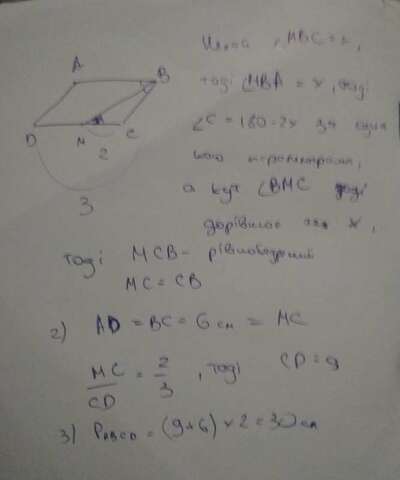 A
B
D
M
C
2
3
∠MBC = x,
тоді ∠MBA = x, тоді
∠C = 180 - 2x за
паралелограма,
а кут ∠BMC тоді
дорівнює x,
тоді MCB - рівнобедрений
MC = CB
2) AD = BC = 6 см = MC
MC/CD = 2/3, тоді CD = 9
3) PABCD = (9+6) × 2 = 30 см